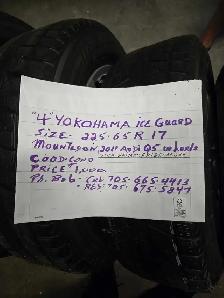 "4" YOKOHAMA ice GUARD
SIZE - 225.65 R 17
MOUNTED ON 2011 AUDI Q5 wheels
GOOD COND
PRICE $1,000
Ph. Bob - Cel 705-665-4413
- RES: 705- 675-5847